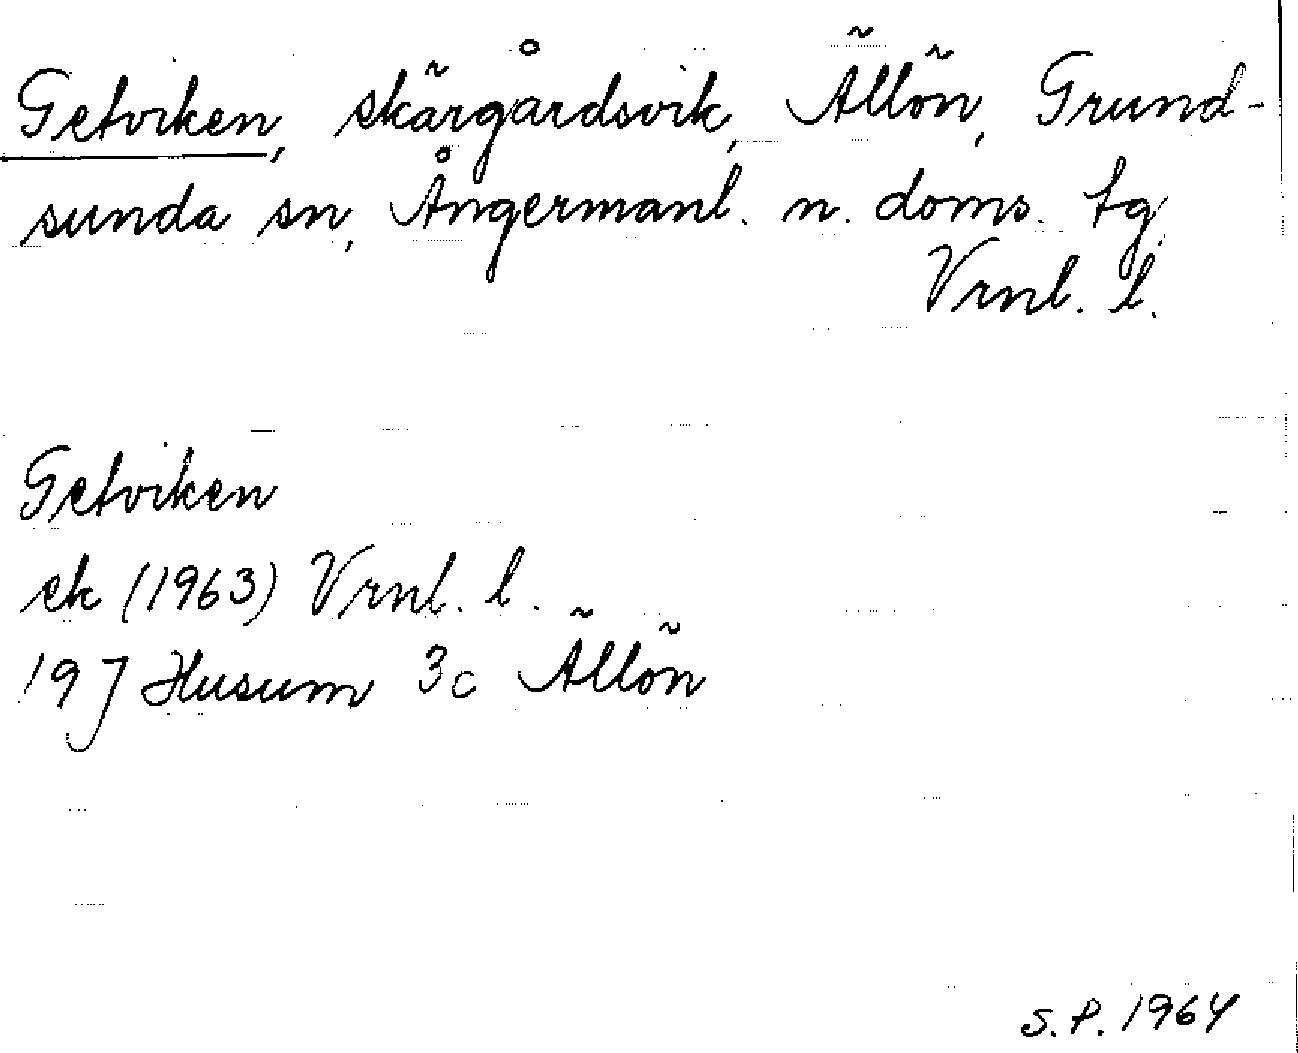 Getviken, skärgårdsvik, Ällön, Grund-
sunda sn, Ångermanl. n. doms. tg
Vrnl. l.
Getviken
ek (1963) Vrnl. l.
19J Husum 3c Ällön
S.P. 1964